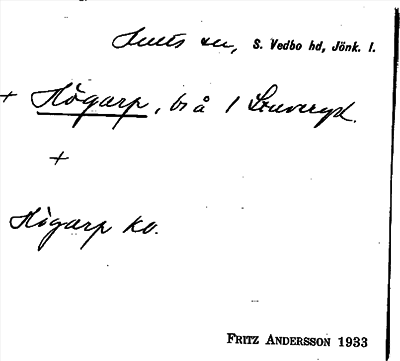 Hults sn, S. Vedbo hd, Jönk. l.
+ Högarp, å 1 Stuveryd.
+
Högarp ko.
FRITZ ANDERSSON 1933